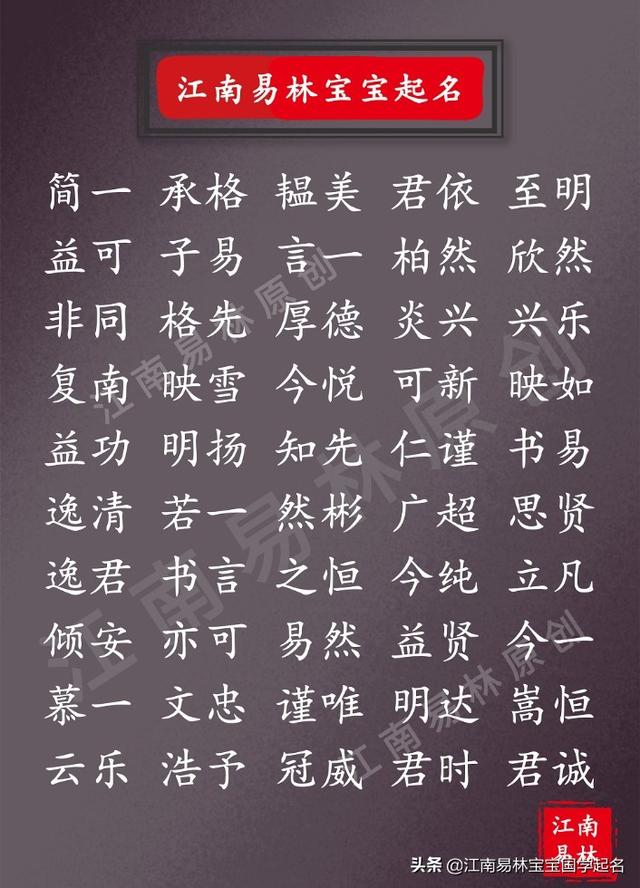 江南易林宝宝起名
简一 承格 韫美 君依 至明
益可 子易 言一 柏然 欣然
非同 格先 厚德 炎兴 兴乐
复南 映雪 今悦 可新 映如
益功 明扬 知先 仁谨 书易
逸清 若一 然彬 广超 思贤
逸君 书言 之恒 今纯 立凡
倾安 亦可 易然 益贤 今一
慕一 文忠 谨唯 明达 嵩恒
云乐 浩予 冠威 君时 君诚
江南易林原创
江南易林原创
江南易林原创
江南
易林
头条 @江南易林宝宝国学起名